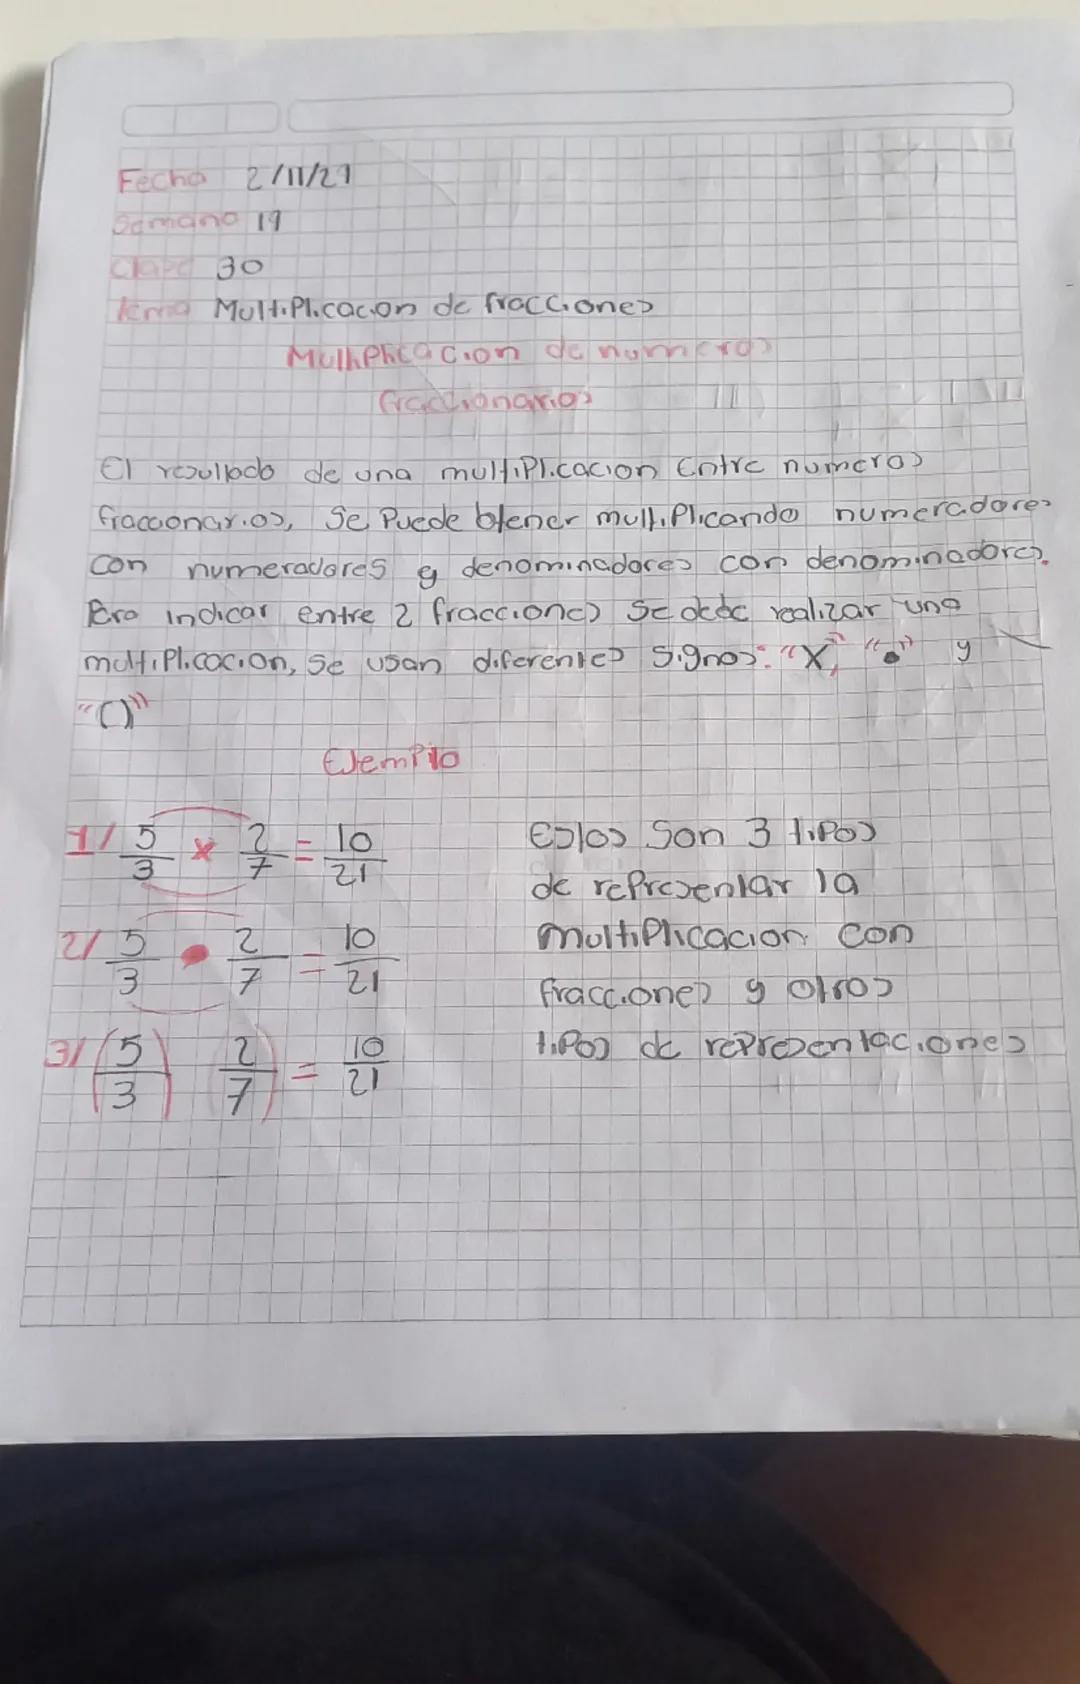 Fecha 2/11/21
Semana 19
Clase 30
Tema Multiplicacion de fracciones
Multiplicacion de numeros
fraccionarios
El resultado de una multiplicacion Entre numeros
fraccionarios, Se Puede btener multiplicando numeradores
con numeradores y denominadores con denominadores.
Para indicar entre 2 fracciones Se debe realizar una
multiplicacion, se usan diferentes Signos: "X", "•" y
"()"
Ejemplo
1/ 5/3 x 2/7 = 10/21
2/ 5/3 • 2/7 = 10/21
3/ (5/3) (2/7) = 10/21
Estos Son 3 tipos
de representar la
multiplicacion con
fracciones y otros
tipos de representaciones